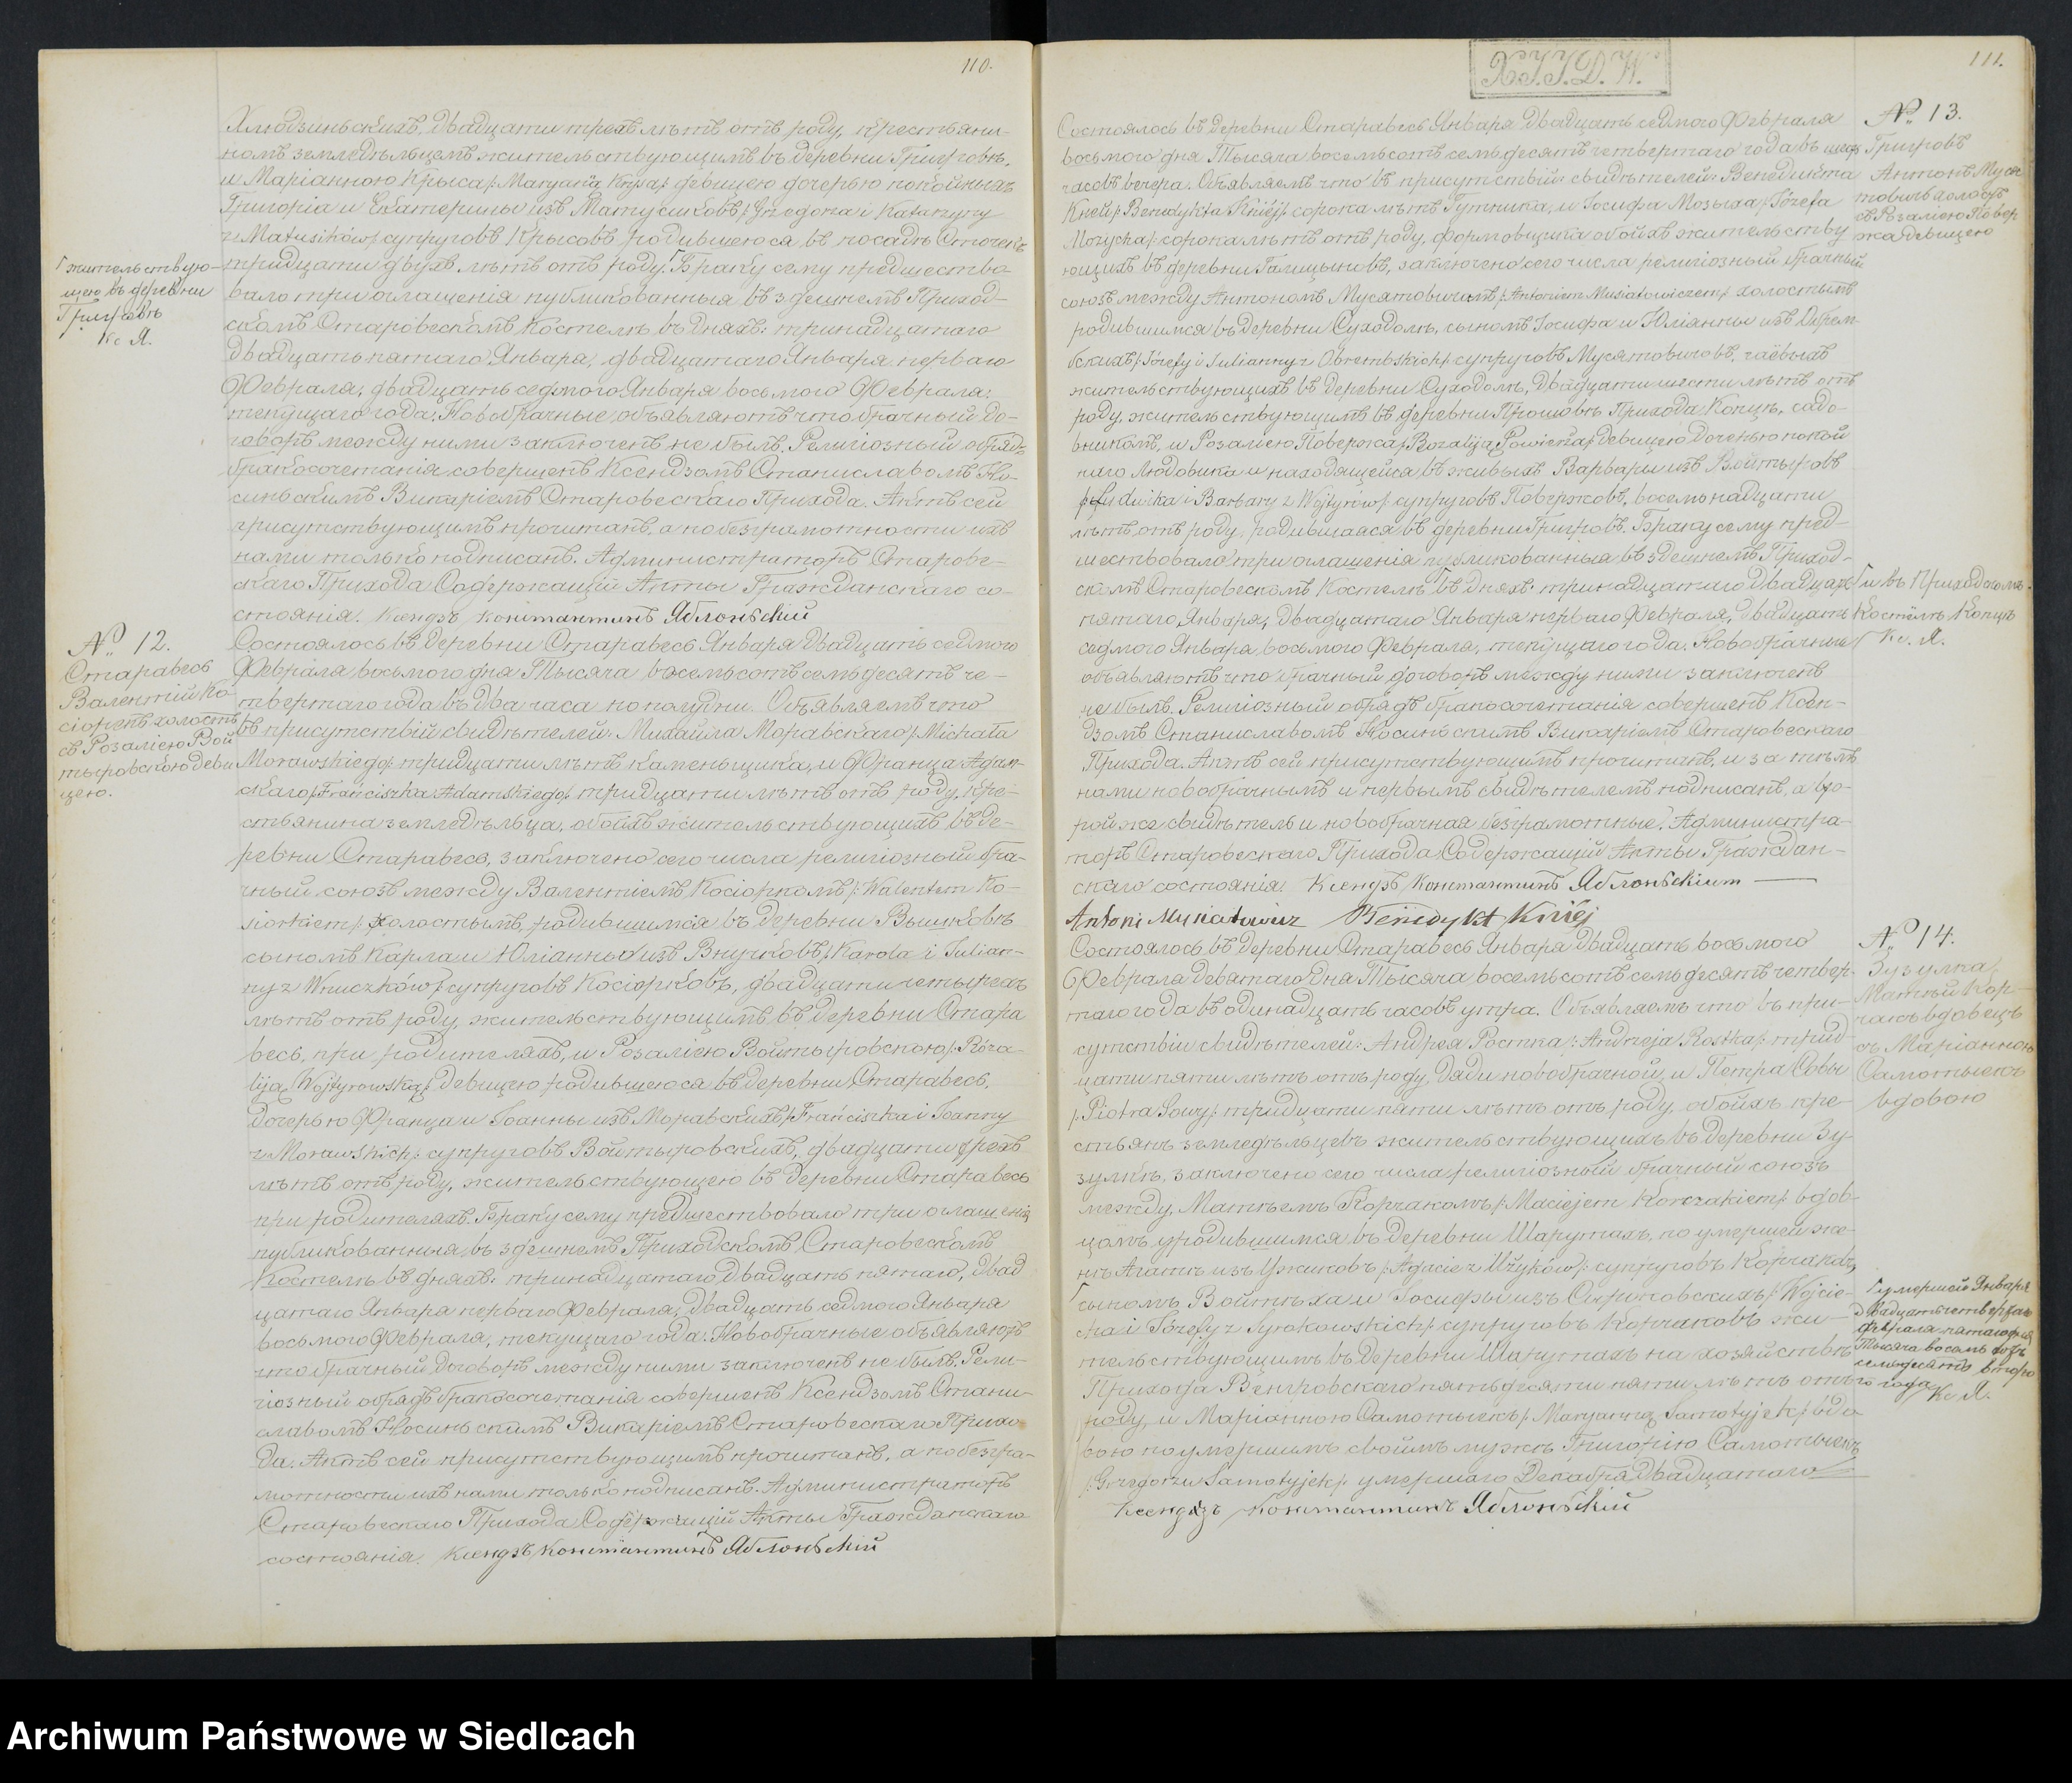 110.
Хлюдзиньскихъ, двадцати трехъ лѣтъ отъ роду, крестьяни-
номъ земледѣльцемъ жительствующимъ въ деревни Григровѣ,
и Маріанною Крыса /: Maryanną Krysa :/ девицею дочерью покойныхъ
Григорія и Екатерины изъ Матусиковъ /: Grzegorza i Katarzyny
z Matusików :/ супруговъ Крысовъ, родившеюся въ посадѣ Сточекъ
тридцати двухъ лѣтъ отъ роду. Браку сему предшество-
вало три оглашенія публикованныя въ здешнемъ Приход-
скомъ Старовескомъ Костелѣ въ дняхъ: тринадцатаго
двадцать пятаго Января, двадцатаго Января перваго
Февраля, двадцать седмого Января восьмого Февраля:
текущаго года. Новобрачные объявляютъ что брачный до-
говоръ между ними заключенъ не былъ. Религіозный обрядъ
бракосочетанія совершенъ Ксендзомъ Станиславомъ Но-
синьскимъ Викаріемъ Старовескаго Прихода. Актъ сей
присутствующимъ прочитанъ, а по безграмотности ихъ
нами только подписанъ. Администраторъ Старове-
скаго Прихода Содержащій Акты Гражданскаго со-
стоянія. Ксендзъ Константинъ Яблоньскій
жительствую-
щею въ деревни
Григровѣ
Кс Я.
№ 12.
Старавесь
Валентій Ко-
сіорекъ холостъ
съ Розаліею Вой
тыровскою деви
цею.
Состоялось въ деревни Старавесь Января двадцать седмого
Февраля восьмого дня Тысяча восемьсотъ семьдесятъ че-
твертаго года въ два часа по полудни. Объявляемъ что
въ присутствіи свидѣтелей: Михаила Моравскаго /: Michała
Morawskiego :/ тридцати лѣтъ каменьщика, и Франца Адам-
скаго /: Franciszka Adamskiego :/ тридцати лѣтъ отъ роду, кре-
стьянина земледѣльца, обоихъ жительствующихъ въ де-
ревни Старавесь, заключено сего числа религіозный бра-
чный союзъ между Валентіемъ Косіоркомъ /: Walentem Ko-
siorkiem :/ холостымъ, родившимся въ деревни Вышковѣ
сыномъ Карла и Юліанны изъ Внучковъ /: Karola i Julian-
ny z Wnuczków :/ супруговъ Косіорковъ, двадцати четырехъ
лѣтъ отъ роду, жительствующимъ въ деревни Стара
весь, при родителяхъ, и Розаліею Войтыровскою /: Roza-
lją Wojtyrowską :/ девицею родившеюся въ деревни Старавесь,
дочерью Франца и Іоанны изъ Моравскихъ /: Franciszka i Joanny
z Morawskich :/ супруговъ Войтыровскихъ, двадцати трехъ
лѣтъ отъ роду, жительствующею въ деревни Старавесь
при родителяхъ. Браку сему предшествовало три оглашенія
публикованныя въ здешнемъ Приходскомъ Старовескомъ
Костелѣ въ дняхъ: тринадцатаго двадцать пятаго, двад
цатаго Января перваго Февраля, двадцать седмого Января
восьмого Февраля, текущаго года. Новобрачные объявляютъ
что брачный договоръ между ними заключенъ не былъ. Рели-
гіозный обрядъ бракосочетанія совершенъ Ксендзомъ Стани-
славомъ Носиньскимъ Викаріемъ Старовескаго Прихо
да. Актъ сей присутствующимъ прочитанъ, а по безгра-
мотности ихъ нами только подписанъ. Администраторъ
Старовескаго Прихода Содержащій Акты Гражданскаго
состоянія. Ксендзъ Константинъ Яблоньскій
111.
№ 13.
Григровъ
Антонъ Муся
товичъ холостъ
съ Розаліею Повер
жа девицею
Состоялось въ деревни Старавесь Января двадцать седмого Февраля
восьмого дня Тысяча восемьсотъ семьдесятъ четвертаго года въ шесть
часовъ вечера. Объявляемъ что въ присутствіи свидѣтелей: Венедикта
Кнеи /: Benedykta Kniej :/ сорока лѣтъ Гутника, и Іосифа Мозыха /: Józefa
Mozycha :/ сорока лѣтъ отъ роду, формовщика обоихъ жительству
ющихъ въ деревни Галицыновъ, заключено сего числа религіозный брачный
союзъ между Антономъ Мусятовичемъ /: Antonim Musiatowiczem :/ холостымъ
родившимся въ деревни Суходолъ, сыномъ Іосифа и Юліанны изъ Обрем-
бскихъ /: Józefy i Julianny z Obrembskich :/ супруговъ Мусятовичовъ,
жительствующихъ въ деревни Суходолъ, двадцати шести лѣтъ отъ
роду, жительствующимъ въ деревни Прошовъ Прихода Копцѣ, садо-
вникомъ, и Розаліею Повержа /: Rozaliją Powierża :/ девицею дочерью покой
наго Людовика и находящейся въ живыхъ Варвары изъ Войтыровъ
/: Ludwika i Barbary z Wojtyrów :/ супруговъ Повержовъ, восемьнадцати
лѣтъ отъ роду, родившаяся въ деревни Григровъ. Браку сему пред-
шествовало три оглашенія публикованныя въ здешнемъ Приход-
скомъ Старовескомъ Костелѣ въ дняхъ: тринадцатаго двадцать
пятаго, Января, двадцатаго Января перваго Февраля, двадцать
седмого Января восьмого Февраля, текущаго года. Новобрачные
объявляютъ что брачный договоръ между ними заключенъ
не былъ. Религіозный обрядъ бракосочетанія совершенъ Ксен-
дзомъ Станиславомъ Носиньскимъ Викаріемъ Старовескаго
Прихода. Актъ сей присутствующимъ прочитанъ, и за тѣмъ
нами новобрачнымъ и первымъ свидѣтелемъ подписанъ, а вто-
рой же свидѣтель и новобрачная безграмотные. Администра-
торъ Старовескаго Прихода Содержащій Акты Граждан-
скаго состоянія. Ксендзъ Константинъ Яблоньскіим
Antoni Musiatowicz Benedykt Kniej
и въ Приходскомъ
Костёлѣ Копцѣ
Кс. Я.
№ 14.
Зузулка
Матѣй Кор-
чакъ вдовецъ
съ Маріанною
Самотыекъ
вдовою
Состоялось въ деревни Старавесь Января двадцать восьмого
Февраля девятаго дня Тысяча восемьсотъ семьдесятъ четвер-
таго года въ одинадцать часовъ утра. Объявляемъ что въ при-
сутствіи свидѣтелей: Андрея Ростка /: Andrzeja Rostka :/ трид-
цати пяти лѣтъ отъ роду, дяди новобрачной, и Петра Совы
/: Piotra Sowy :/ тридцати пяти лѣтъ отъ роду, обоихъ кре-
стьянъ земледѣльцевъ жительствующихъ въ деревни Зу
зулкѣ, заключено сего числа религіозный брачный союзъ
между Матѣемъ Корчакомъ /: Maciejem Korczakiem :/ вдов-
цомъ, родившимся въ деревни Шарутахъ, по умершей же-
нѣ Агатѣ изъ Ужиковъ /: Agacie z Użyków :/ супруговъ Корчаковъ,
сыномъ Войтѣха и Іосифы изъ Сироковскихъ /: Wojcie-
cha i Józefy z Syrokowskich :/ супруговъ Корчаковъ жи-
тельствующимъ въ деревни Шарутахъ на хозяйствѣ
Прихода Венгровскаго пятьдесяти пяти лѣтъ отъ
роду, и Маріанною Самотыекъ /: Maryanną Samotyjek :/ вдо
вою по умершимъ своимъ мужѣ Григорію Самотыекъ
/: Grzegorzu Samotyjek :/ умершаго Декабря двадцатаго
Ксендзъ Константинъ Яблоньскій
умершей Января
двадцать четвертаго
февраля пятаго дня
Тысяча восемь сотъ
семьдесятъ второ
го года
Кс Я.
Archiwum Państwowe w Siedlcach